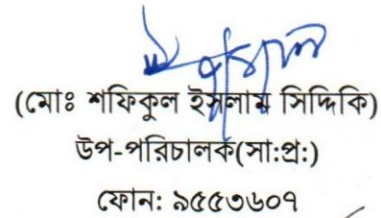 (মোঃ শফিকুল ইসলাম সিদ্দিকি)
উপ-পরিচালক(সা:প্র:)
ফোন: ৯৫৫৩৬০৭